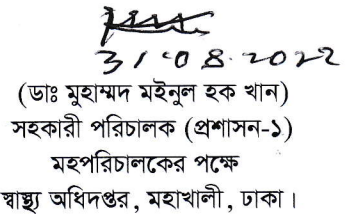 31.08.2022
(ডাঃ মুহাম্মদ মইনুল হক খান)
সহকারী পরিচালক (প্রশাসন-১)
মহপরিচালকের পক্ষে
স্বাস্থ্য অধিদপ্তর, মহাখালী, ঢাকা।